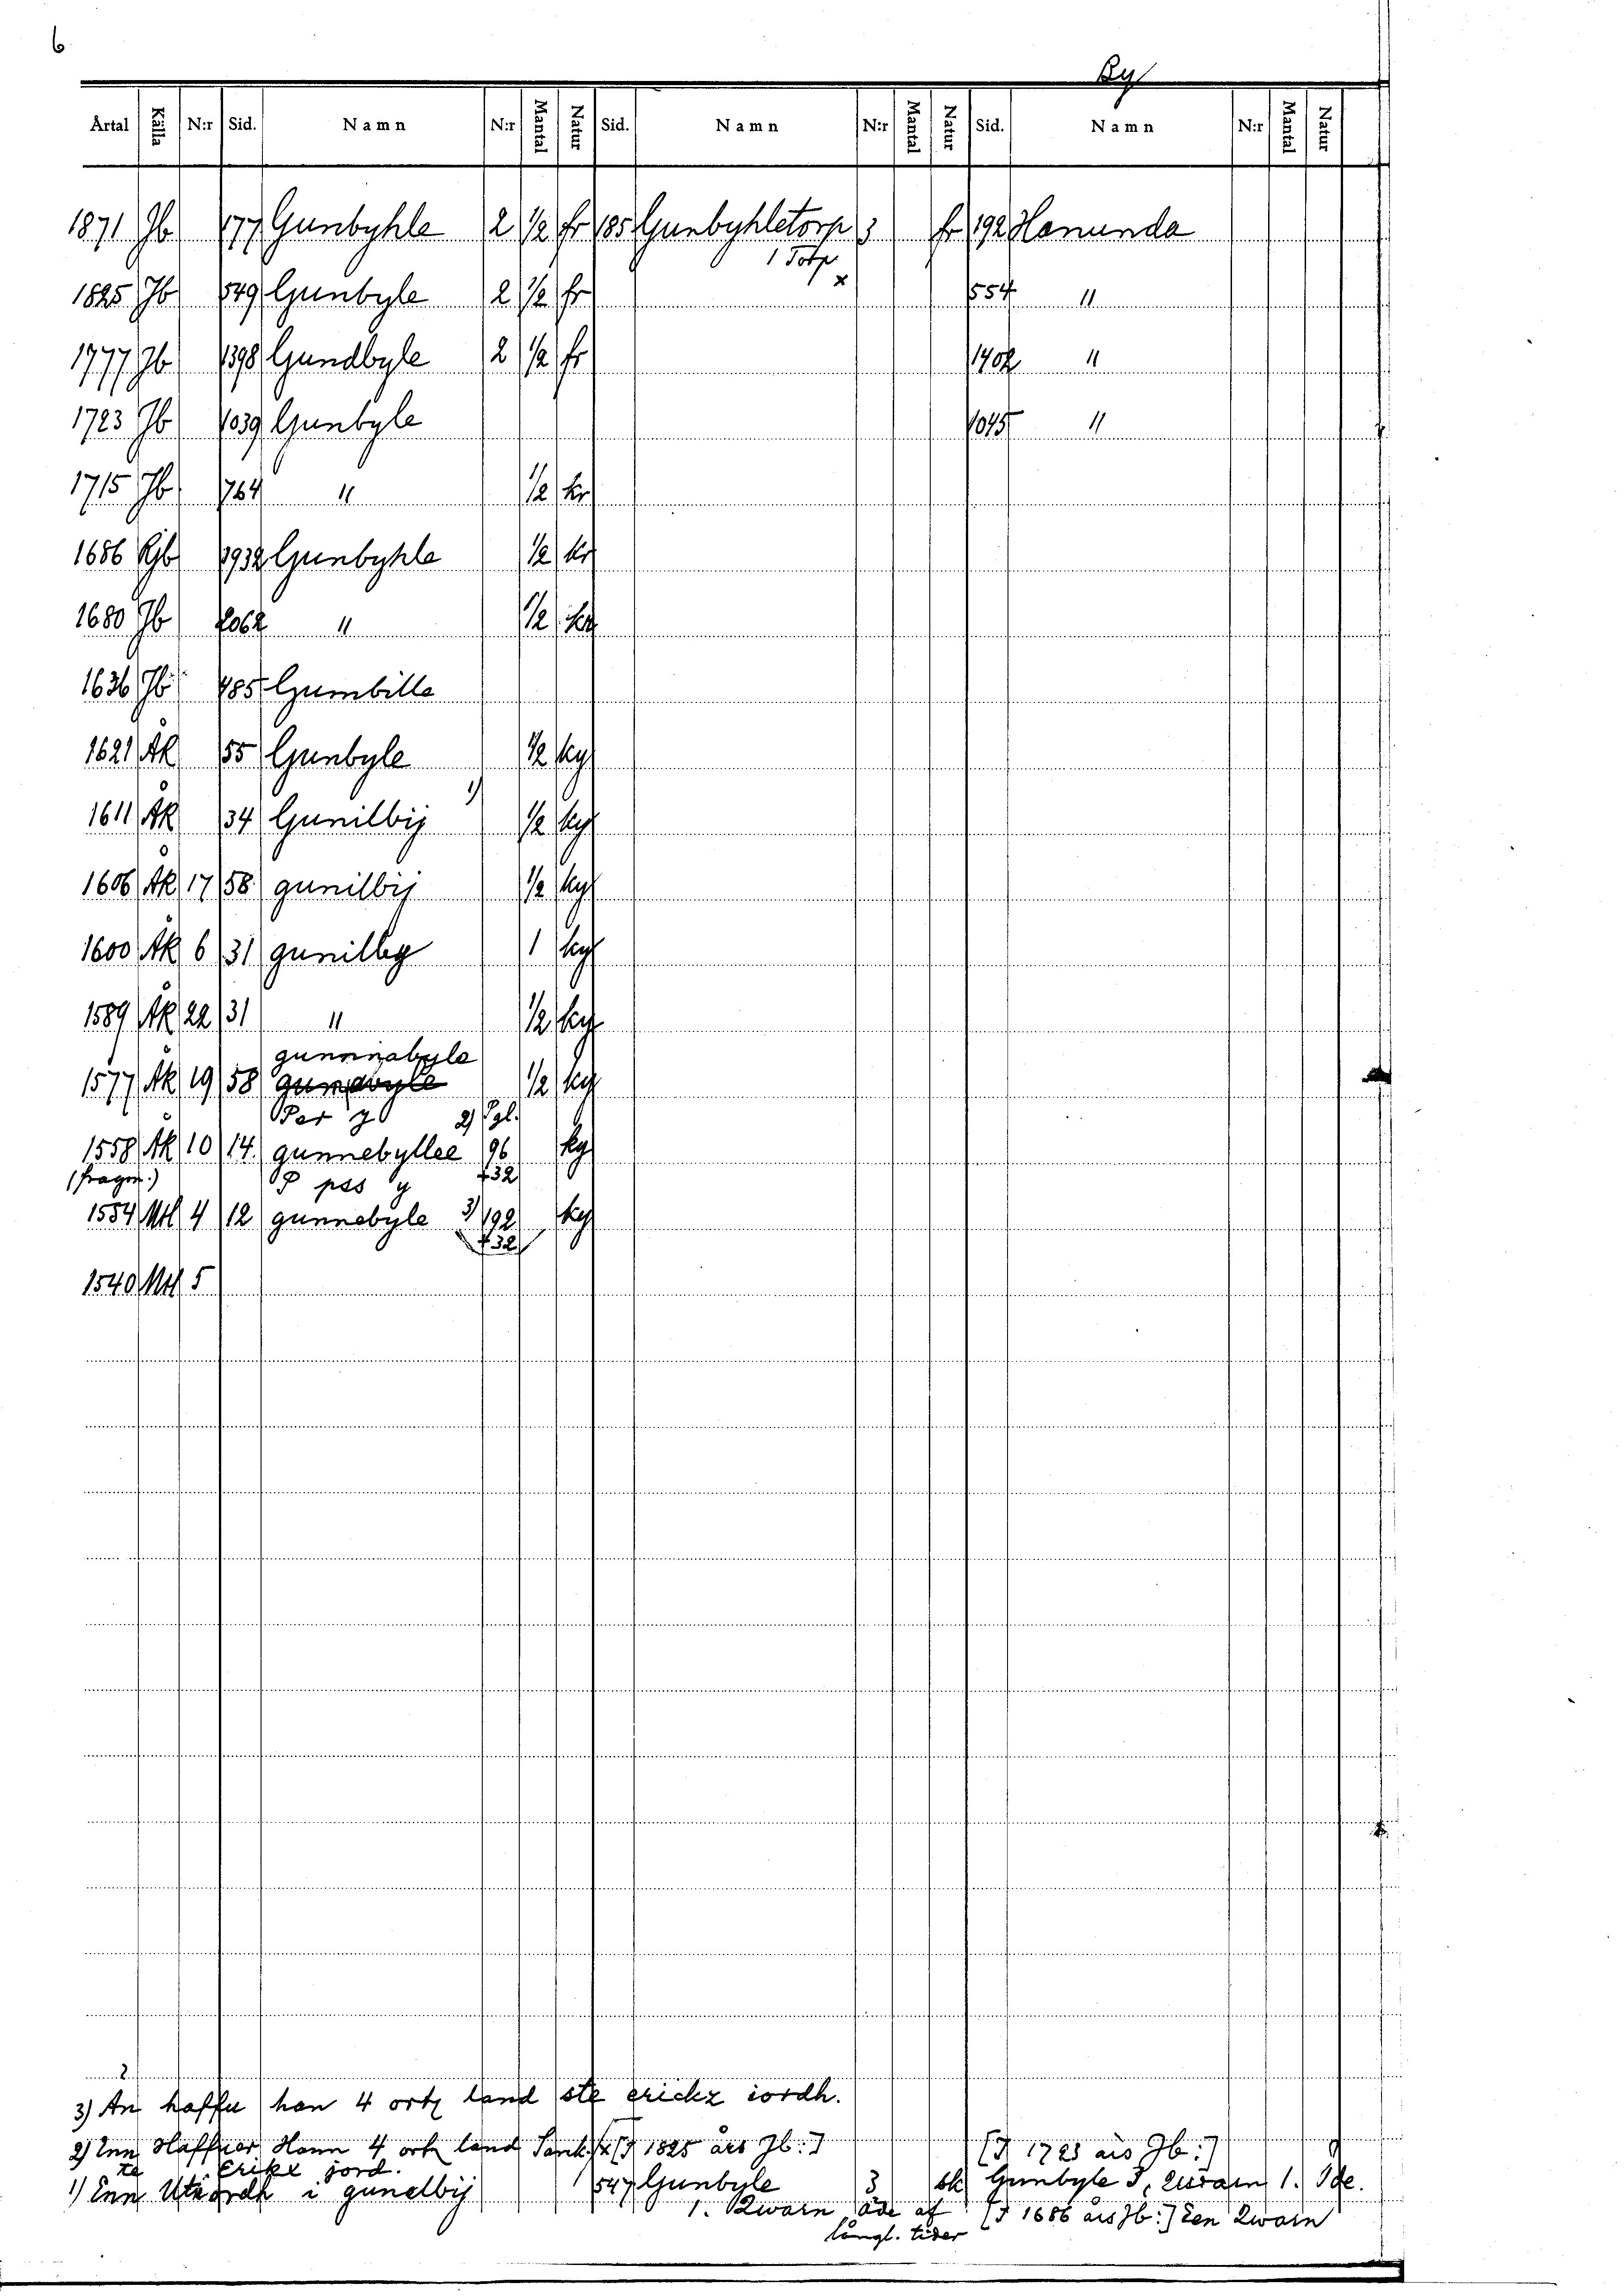 6
By
Årtal Källa N:r Sid. Namn N:r Mantal Natur Sid. Namn N:r Mantal Natur Sid. Namn N:r Mantal Natur
1871 Jb 177 Gunbyhle 2 1/2 fr 185 Gunbyhletorp 3 fr 192 Hanunda
1 Torp
x
1825 Jb 549 Gunbyle 2 1/2 fr 554 "
1777 Jb 1398 Gundbyle 2 1/2 fr 1402 "
1723 Jb 1039 Gunbyle 1045 "
1715 Jb 764 " 1/2 kr
1686 Jb 1932 Gunbyhle 1/2 kr
1680 Jb 2062 " 1/2 kr
1636 Jb 485 Gumbille
1621 ÅK 55 Gunbyle 1/2 ky
1611 ÅK 34 Gunilbij 1) 1/2 ky
1606 ÅK 17 58 gunilbij 1/2 ky
1600 ÅK 6 31 gunilby 1 ky
1589 ÅK 22 31 " 1/2 ky
gunnnabyle
1577 ÅK 19 58 1/2 ky
Per y 2) Pgl.
1558 ÅK 10 14 gunnebyllee 96 ky
(fragm.) P pss y +32
1554 Mtl 4 12 gunnebyle 3) 192 ky
+32
1540 Mtl 5
3) An haffu han 4 ortz land ste erickz iordh.
2) Enn Haffuer Hann 4 ortz land Sank x [I 1825 års Jb:] [I 1723 års Jb:]
te Erikx jord.
1) Enn Utiordh i gunelbij 547 Gunbyle 3 sk Gunbyle 3, Quarn 1. Öde.
1. Qwarn öde af [I 1686 års Jb:] Een Qwarn
långl. tider